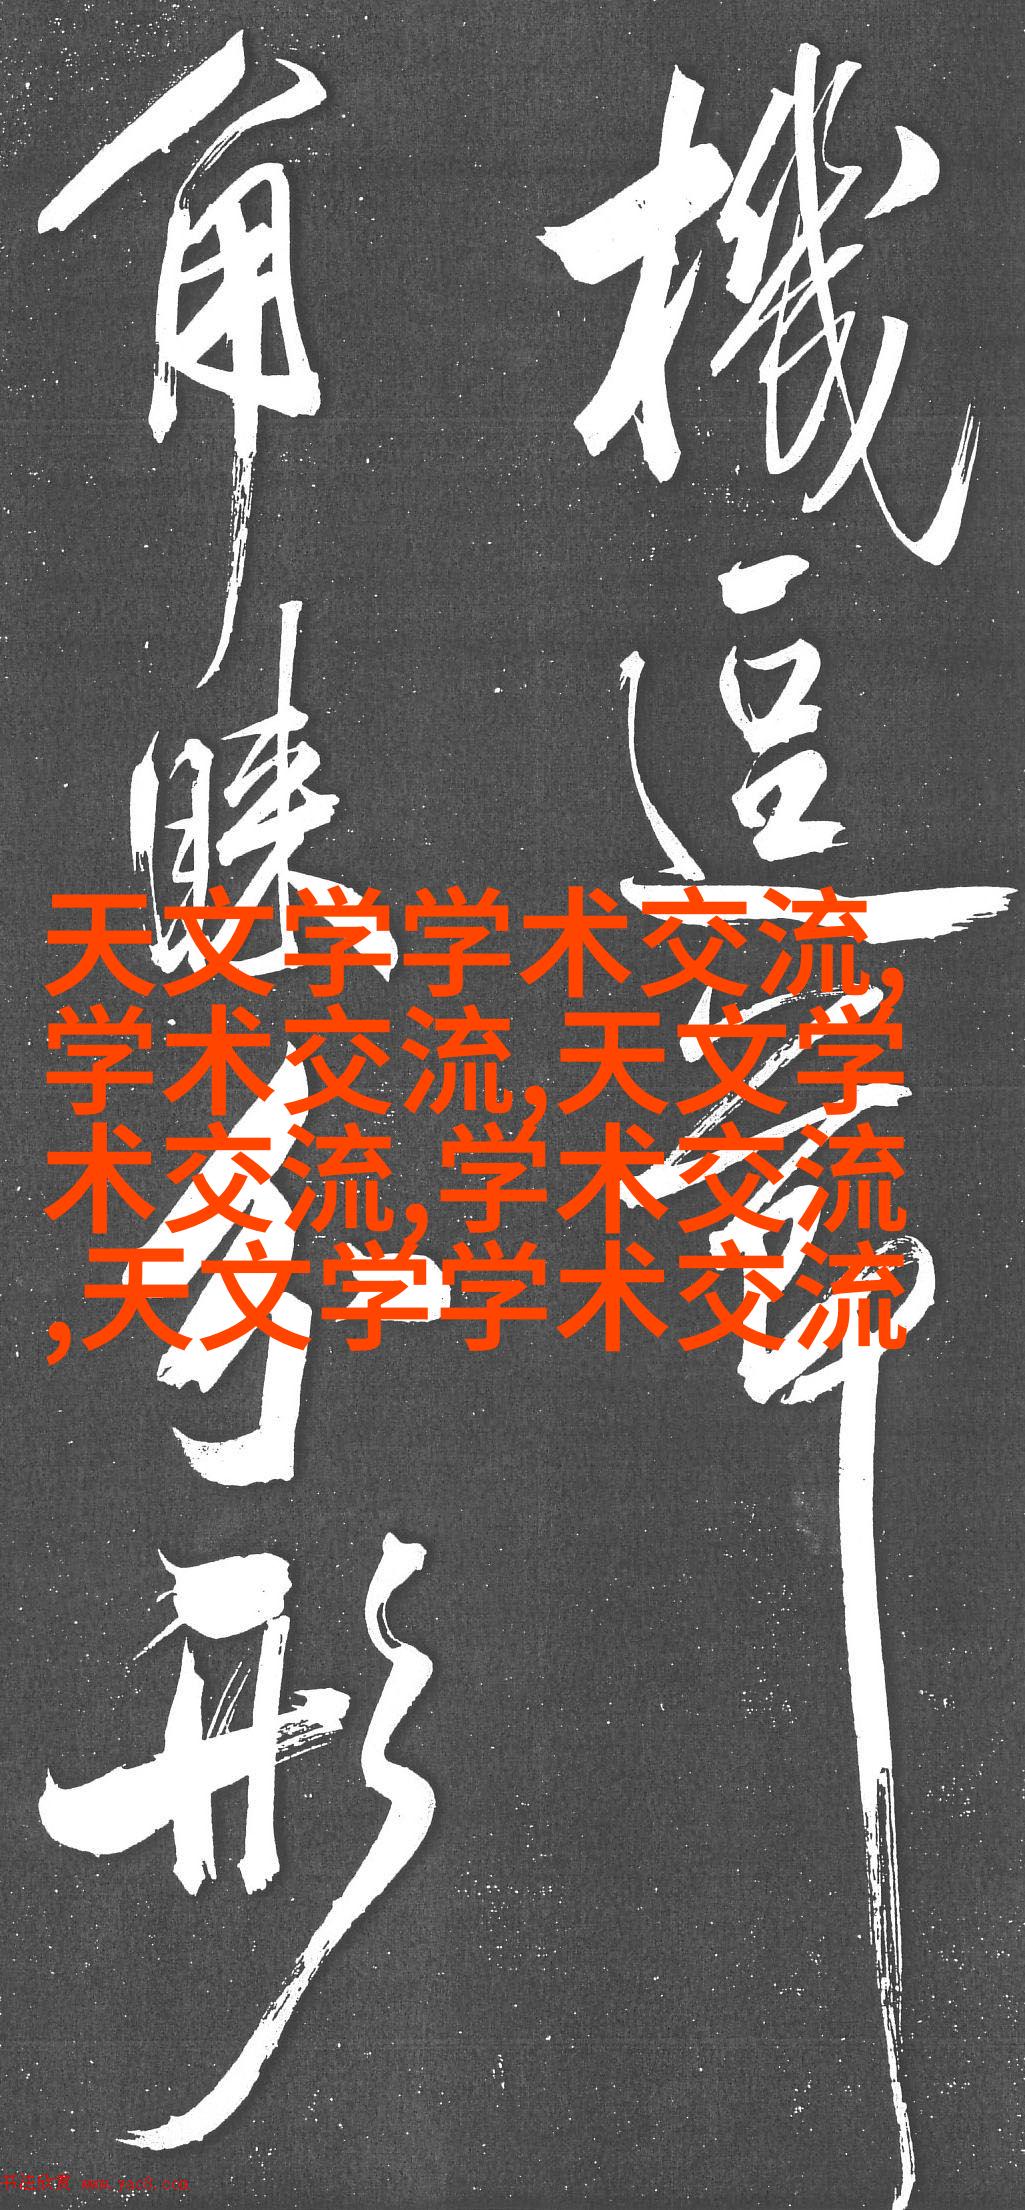 機逗
角形
天文学学术交流,
学术交流,天文学
术交流,学术交流
,天文学学术交流
书法欣赏 www.yac8.com